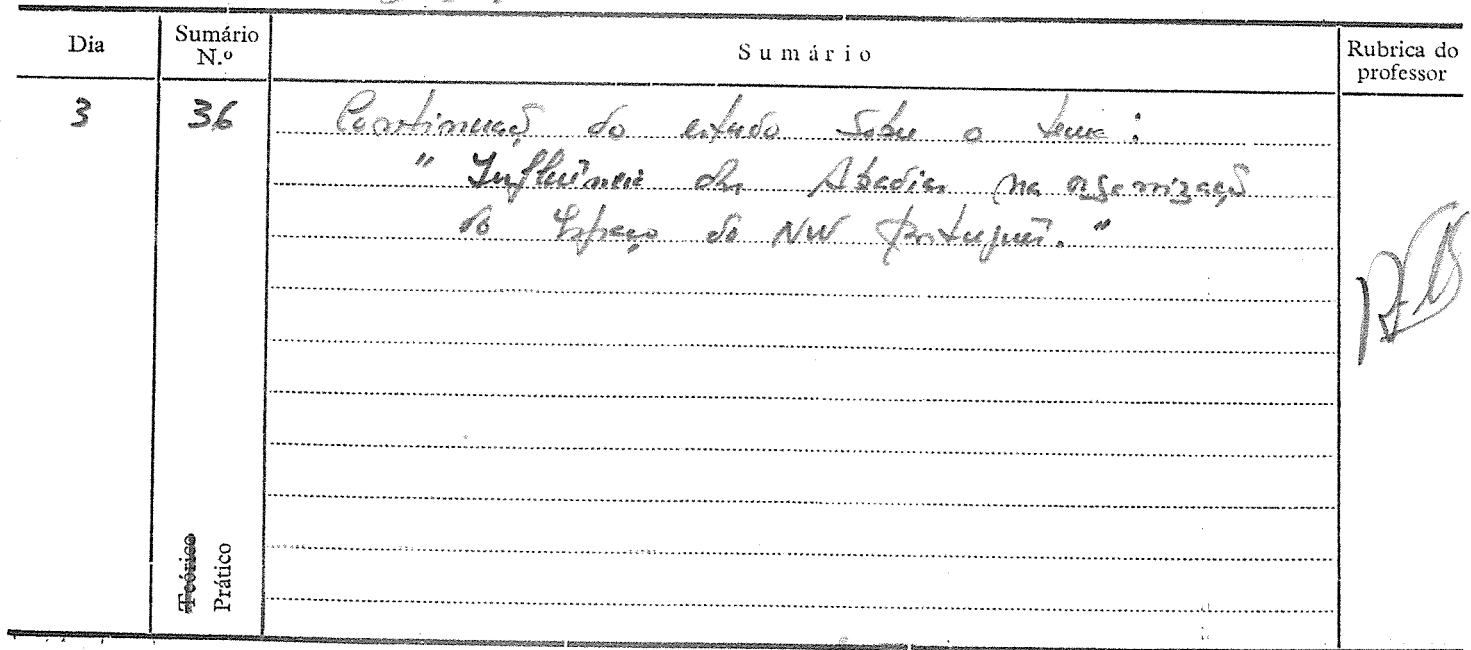 Dia
Sumário N.º
Sumário
Rubrica do professor
3
36
Continuaçã do estudo sobre o tema:
"Influência das Abadias na organizaçã
do Espaço do NW Português."
Teórico
Prático